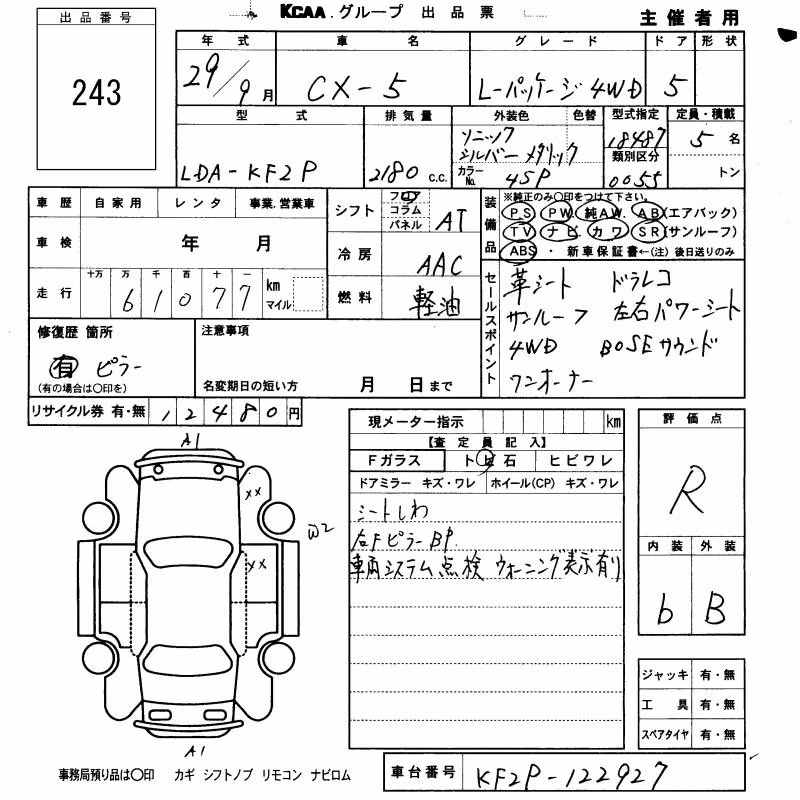 KCAA.グループ 出品票
主催者用
出品番号
243
年式 車名 グレード ドア 形状
29/9月 CX-5 Lーパッケージ 4WD 5
型式 排気量 外装色 色替 型式指定 定員・積載
LDA-KF2P 2180 C.C. ソニック シルバーメタリック 18487 5名
カラーNo. 45P 類別区分 0055 トン
車歴 自家用 レンタ 事業.営業車
車検 年 月
走行 十万 万 千 百 十 一 km マイル
61077
シフト フロア コラム パネル AT
冷房 AAC
燃料 軽油
装備品 ※純正のみ〇印をつけて下さい。
PS PW 純AW. AB(エアバック)
TV ナビ. カワ SR(サンルーフ)
ABS ・ 新車保証書←(注)後日送りのみ
セールスポイント
革シート ドラレコ
サンルーフ 左右パワーシート
4WD BOSEサウンド
ワンオーナー
修復歴 箇所
有 ピラー
(有の場合は〇印を)
注意事項
名変期日の短い方 月 日まで
リサイクル券 有・無 12480円
現メーター指示 km
【査定員記入】
Fガラス トビ石 ヒビワレ
ドアミラー キズ・ワレ ホイール(CP) キズ・ワレ
シートしわ
右Fピラー BP.
車両システム点検 ウォーニング表示有り
評価点
R
内装 外装
b B
ジャッキ 有・無
工具 有・無
スペアタイヤ 有・無
A1
XX
W2
XX
A1
事務局預り品は〇印 カギ シフトノブ リモコン ナビロム
車台番号 KF2P-122927